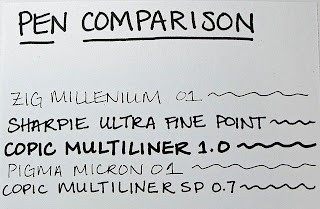 PEN COMPARISON
ZIG MILLENIUM 01
SHARPIE ULTRA FINE POINT
COPIC MULTILINER 1.0
PIGMA MICRON 01
COPIC MULTILINER SP 0.7